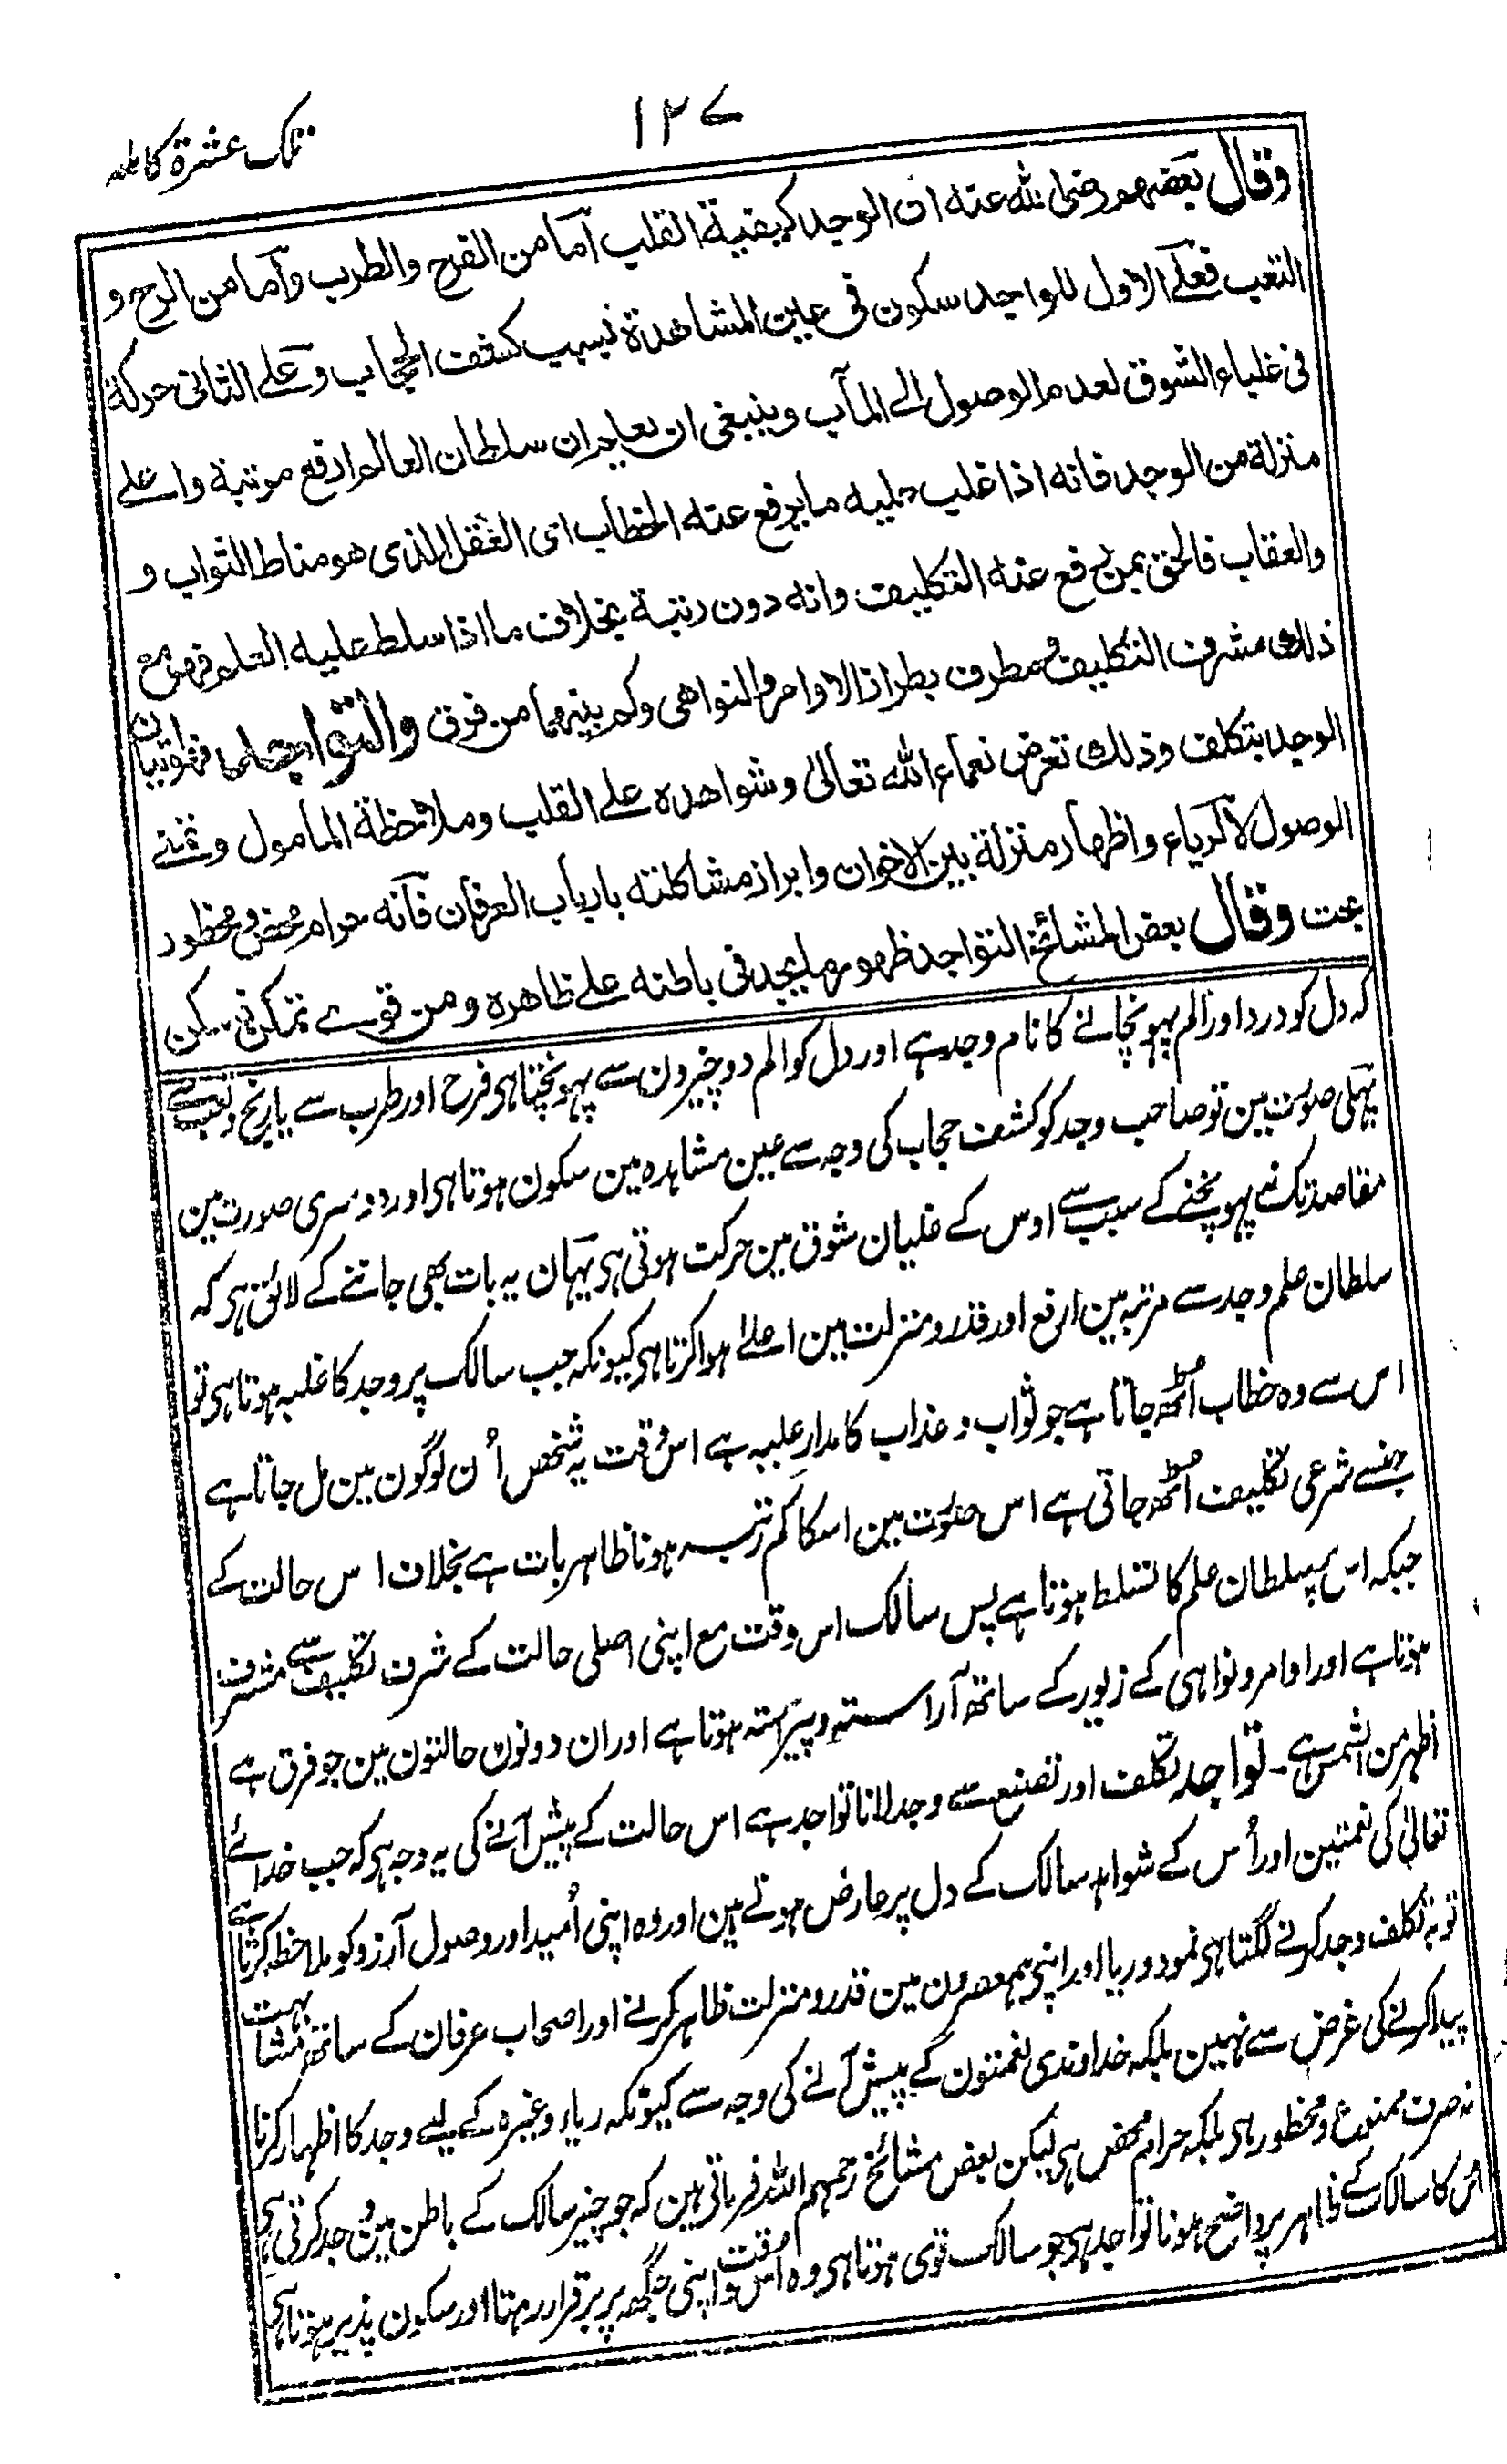 ۱۲۷
تلک عشرة کاملہ
وقال بعضهم رضی الله عنه ان الوجد کیفیة القلب اما من الفرح والطرب واما من الرح و
التعب فعلے الاول للواجد سکون فی عین المشاهدة بسبب کشف الحجاب وعلے الثانی حرکة
فی غلیاء الشوق لعدم الوصول الے المآب وینبغی ان یعلم ان سلطان العالم ارفع مرتبة واعلے
منزلة من الوجد فانه اذا غلب علیه ما یرفع عنه الخطاب ای العقل الذی هو مناط الثواب و
والعقاب فالحق بمن رفع عنه التکلیف وانه دون رتبة بخلاف ما اذا سلط علیه العلم فهو مع
ذلك مشرف التکلیف ومطرف بطراز الاوامر والنواهی وکم بینهما من فرق والتواجد فهو اتیان
الوجد بتکلف وذلك تعرض نعماء الله تعالی وشواهده علے القلب وملاحظة المامول وتمنے
الوصول لا کریاء واظهار منزلة بین الاخوان وابراز مشاکلته بارباب العرفان فانه حرام محض ومحظور
بحت وقال بعض المشائخ التواجد ظهور ما یجد فی باطنه علے ظاهره ومن قوے تمکن فسکن
کہ دل کو درد اور الم پہونچانے کا نام وجد ہے اور دل کو الم دو چیزون سے پہونچتا ہی فرح اور طرب سے یا رنج و تعب سے
پہلی صورت مین تو صاحب وجد کو کشف حجاب کی وجہ سے عین مشاہدہ مین سکون ہوتا ہی اور دوسری صورت مین
مقاصد تک نہ پہونچنے کے سبب سے اوس کے غلیان شوق مین حرکت ہوتی ہی یہان یہ بات بھی جاننے کے لائق ہی کہ
سلطان علم وجد سے مرتبہ مین ارفع اور قدر و منزلت مین اعلےٰ ہوا کرتا ہی کیونکہ جب سالک پر وجد کا غلبہ ہوتا ہی تو
اس سے وہ خطاب اُٹھ جاتا ہے جو ثواب و عذاب کا مدار علیہ ہے اس وقت یہ شخص اُن لوگون مین مل جاتا ہے
جنسے شرعی تکلیف اُٹھ جاتی ہے اس صورت مین اسکا کم رتبہ ہونا ظاہر بات ہے بخلاف اس حالت کے
جبکہ اس پر سلطان علم کا تسلط ہوتا ہے پس سالک اس وقت مع اپنی اصلی حالت کے شرف تکلیف سے مشرف
ہوتا ہے اور اوامر و نواہی کے زیور کے ساتھ آراستہ و پیراستہ ہوتا ہے اور ان دونون حالتون مین جو فرق ہے
اظہر من الشمس ہے ۔ تواجد تکلف اور تصنع سے وجد لانا تواجد ہے اس حالت کے پیش آنے کی یہ وجہ ہی کہ جب خداے
تعالیٰ کی نعمتین اور اُس کے شواہد سالک کے دل پر عارض ہوتے ہین اور وہ اپنی اُمید اور وصول آرزو کو ملاحظہ کرتا ہے
تو بہ تکلف وجد کرنے لگتا ہی نمود و ریا اور اپنی ہمعصرون مین قدر و منزلت ظاہر کرنے اور اصحاب عرفان کے ساتھ مشابہت
پیدا کرنے کی غرض سے نہین بلکہ خداوندی نعمتون کے پیش آنے کی وجہ سے کیونکہ ریاء وغیرہ کے لیے وجد کا اظہار کرنا
نہ صرف ممنوع و محظور ہی بلکہ حرام محض ہی لیکن بعض مشائخ رحمہم اللہ فرماتی ہین کہ جو چیز سالک کے باطن مین وجد کرتی ہی
اُس کا سالک کے ظاہر پر واضح ہونا تواجد ہی جو سالک قوی ہوتا ہی وہ اس وقت اپنی جگہ پر برقرار رہتا اور سکون پذیر ہوتا ہی